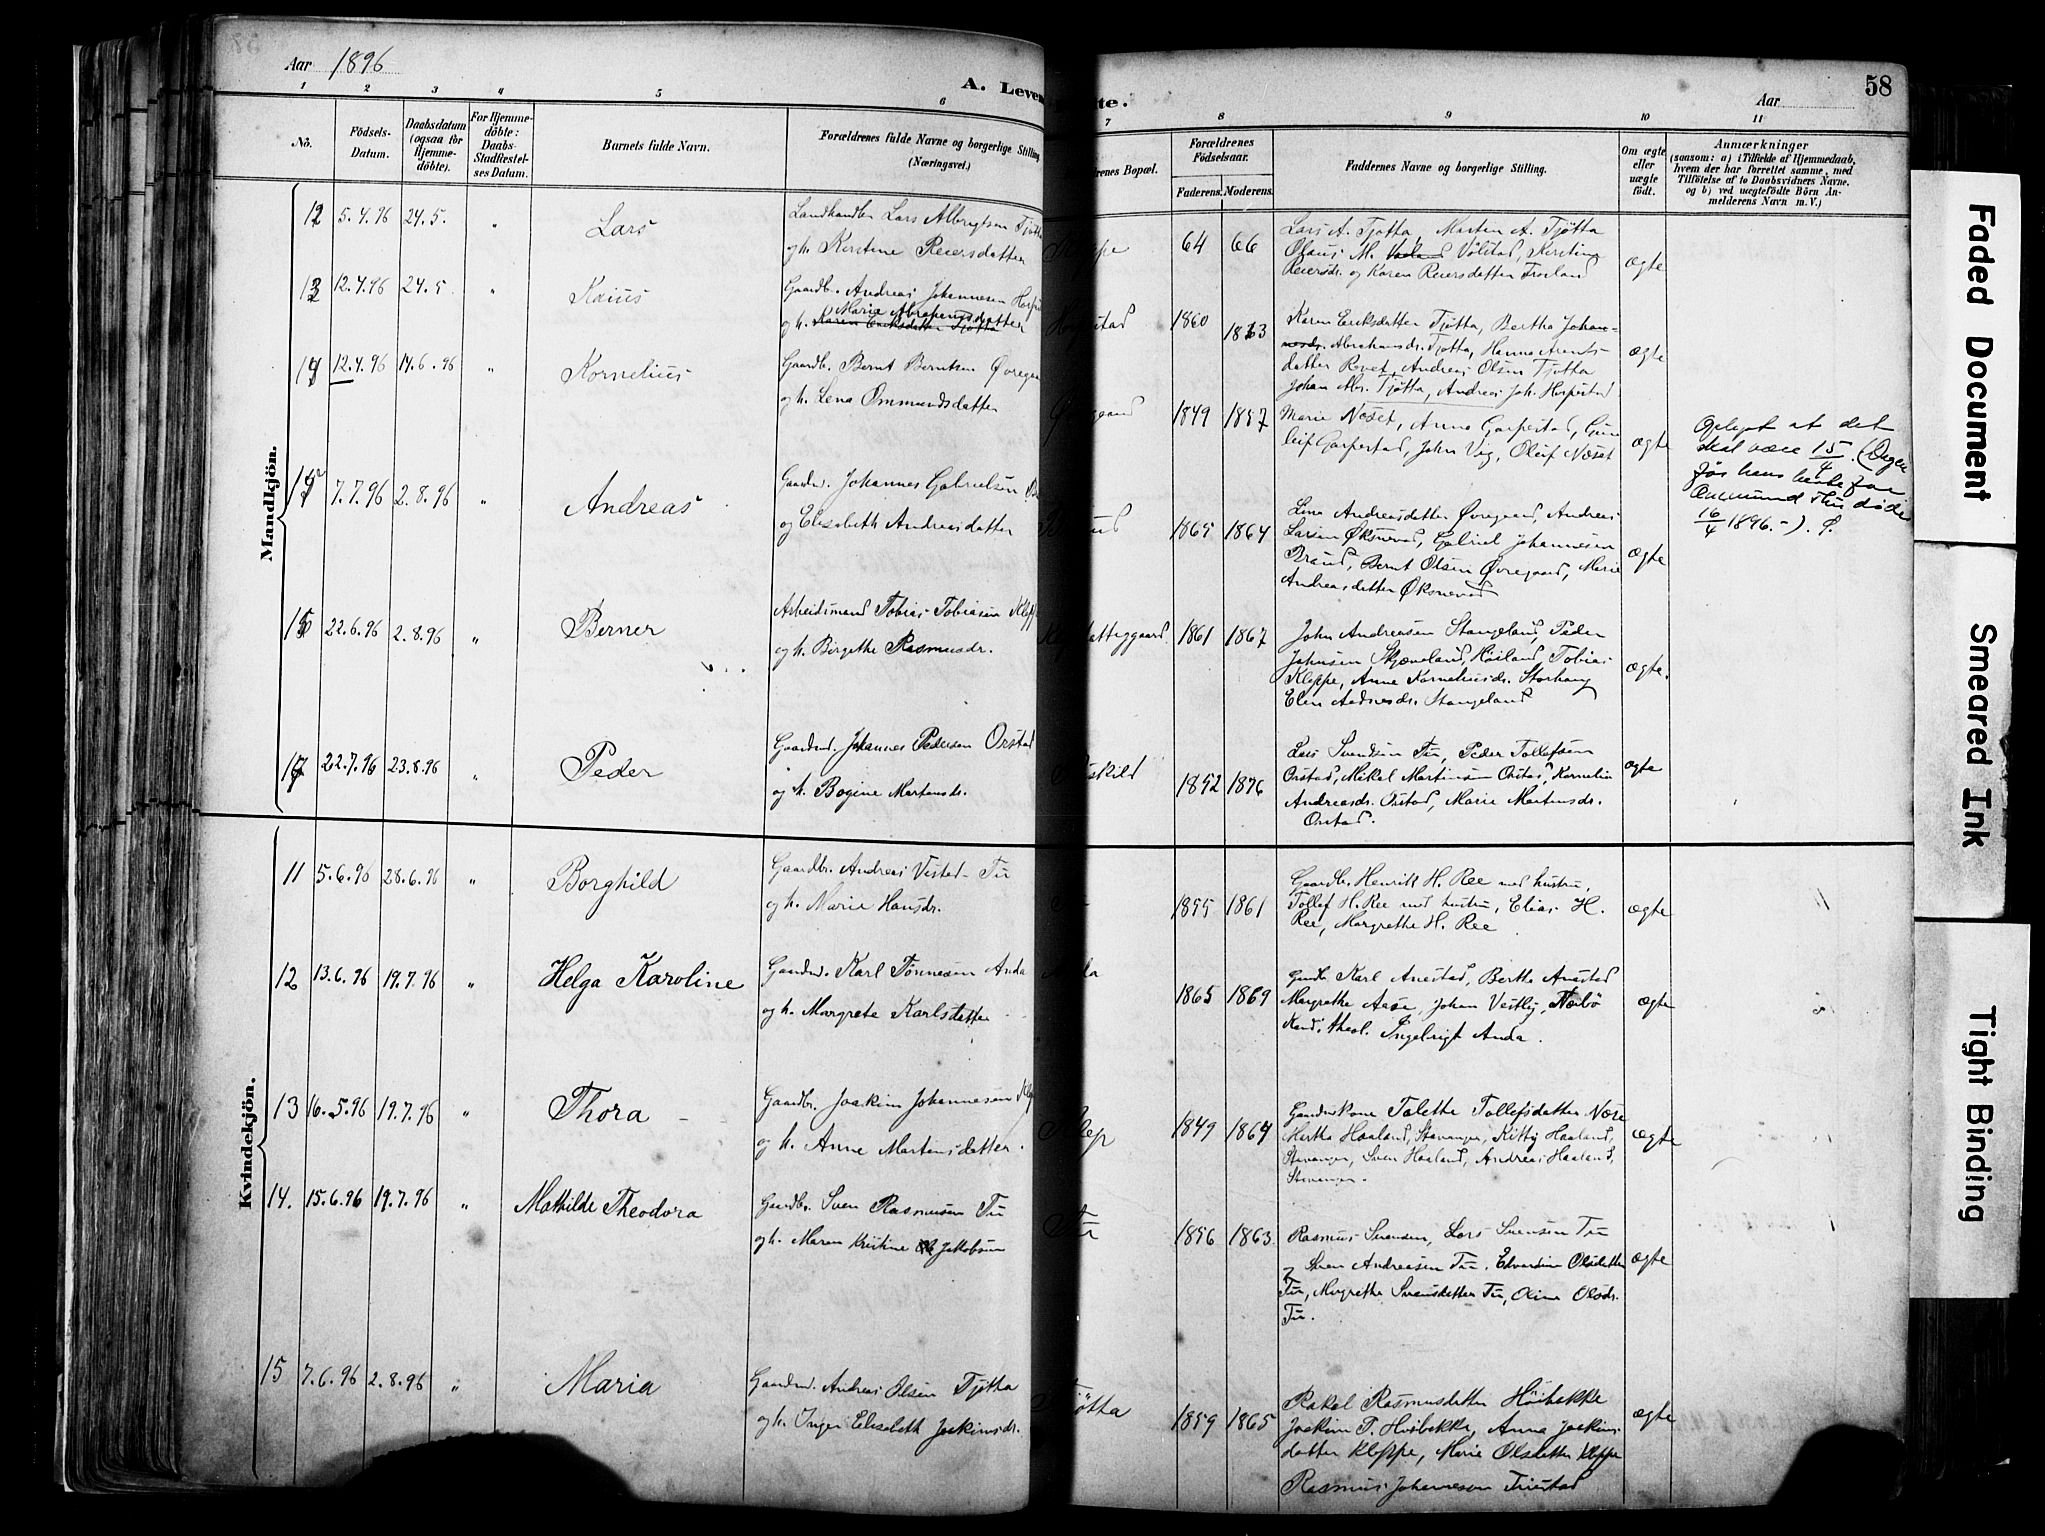 Aar 1896
A. Leven
te.
Aar
58
1 2 3 4 5 6 7 8 9 10 11
No.
Födsels-
Datum.
Daabsdatum
(ogsaa for
Hjemme-
döbte).
For Hjemme-
döbte:
Daabs-
Stadfæstel-
ses Datum.
Barnets fulde Navn.
Forældrenes fulde Navne og borgerlige Stilling
(Næringsvei.)
drenes Bopæl.
Forældrenes
Födselsaar.
Faderens. Moderens.
Faddernes Navne og borgerlige Stilling.
Om ægte
eller
uægte
født.
Anmærkninger
(saasom: a) i Tilfælde af Hjemmedaab,
hvem der har forrettet samme, med
Tilføielse af to Daabsvidners Navne,
og b) ved uægtefödte Börn An-
melderens Navn m. V.)
Mandkjön.
12 5.4.96 24.5. " Lars
Landhandler Lars Albregtsen Tjøtta
og h. Kirstine Reiersdatter
64 66
Lars A. Tjøtta, Morten A. Tjøtta
Olaus M. Vølstad, Kirstine
Reiersdr. og Karen Reiersdatter Froiland
ægte
13 12.4.96 24.5 " Kaius
Gaardb. Andreas Johannesen
Marie Abrahamsdatter
og h. Karen Eriksdatter Tjøtta
1860 1863
Karen Eriksdatter Tjøtta, Bertha Johan-
nesdr. Abrahamsdr. Tjøtta, Hanna Arents-
datter Roret, Andreas Olsen Tjøtta
Johan Abr. Tjøtta, Andreas Joh. Horpestad
ægte
14 12.4.96 14.6.96 " Kornelius
Gaardb. Bernt Berntsen Øvregaa
og h. Lena Ommundsdatter
1849 1857
Marie Næset, Anna Garpestad, Gun
leif Garpestad, John Vig, Oluf Næset
ægte
Oplegat at det
skal være 15/4. (Dagen
før hans
Ommund Thu døde
16/4 1896.-). Ø.
15 7.7.96 2.8.96 " Andreas
Gaardm. Johannes Gabrielsen
og Elisabeth Andreasdatter
1865 1864
Lena Andreasdatter Øvregaard, Andreas
Larsen Øksnevad, Gabriel Johannesen
Braud, Bernt Olsen Øvregaard, Marie
Andreasdatter Øksnevad
ægte
16 22.6.96 2.8.96 " Berner
Arbeidsmand Tobias Tobiasen Klepp
og h. Birgethe Rasmusdr.
1861 1867
John Andreasen Stangeland, Peder
Johnsen Skjæveland, Høiland, Tobias
Kleppe, Anne Korneliusdr. Storhaug
Elen Andreasdr. Stangeland
ægte.
17 22.7.96 23.8.96 " Peder
Gaardm. Johannes Pedersen Orstad
og h. Bogine Martensdr.
1852 1876
Lars Svendsen Tu, Peder Tollefsen
Orstad, Mikel Martinsen Orstad, Kornelia
Andreasdr. Orstad, Marie Martensdr.
Orstad.
ægte
Kvindekjön.
11 5.6.96 28.6.96 " Borghild
Gaardbr. Andreas Vistad Tu
og h. Marie Hansdr.
1855 1861
Gaardbr. Henrik H. Ree med hustru,
Tollef H. Ree med hustru, Elias H.
Ree, Margrethe H. Ree
ægte
12 13.6.96 19.7.96 " Helga Karoline
Gaardm. Karl Tønnesen Anda
og h. Margrete Karlsdatter
1865 1869
Gaardb. Karl Anestad, Bertha Anestad
Margrethe Aase, Johan Vestly, Nærbø
Kand. theol. Ingebrigt Anda.
ægte
13 16.5.96 19.7.96 " Thora
Gaardbr. Joakim Johannesen Klep
og h. Anne Martensdatter.
Klep
1849 1864
Gaardm. kone Talette Tollefsdatter Næse
Hertha Haaland, Stavanger, Kitty Haaland,
Stavanger, Sven Haaland, Andreas Haaland,
Stavanger.
ægte
14. 15.6.96 19.7.96 " Mathilde Theodora
Gaardbr. Sven Rasmusen Tu
og h. Maren Kristine Jakobsen
Tu
1856 1863
Rasmus Svendsen, Lars Svensen Tu
Søren Andreasen Tu, Edvardine Olsdatter
Tu, Margrethe Svensdatter Tu, Oline Olsdr.
Tu.
ægte
15 7.6.96 2.8.96 " Maria
Gaardm. Andreas Olsen Tjøtta
og h. Inger Elisabeth Joakimsdr.
Tjøtta
1859 1865
Rakel Rasmusdatter Höibakke
Joakim T. Höibakke, Anna Joakims-
datter Kleppe, Marie Olsdatter Kleppe
Rasmus Johannesen Friestad
ægte
Faded Document
Smeared Ink
Tight Binding